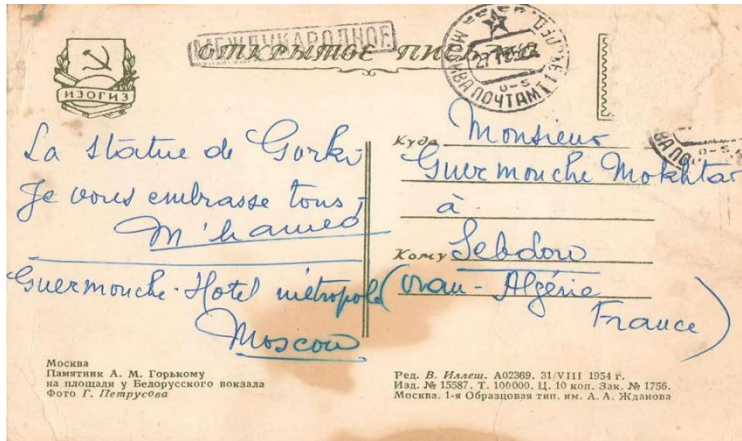 МЕЖДУНАРОДНОЕ
ОТКРЫТОЕ ПИСЬМО
ИЗОГИЗ
МОСКВА ПОЧТАМТ
La Statue de Gorki
Je vous embrasse tous,
M'hamed
Guermouche - Hotel métropole
Moscou
Куда Monsieur
Guermouche Mokhtar
à
Кому Sebdou
(Oran - Algérie
France)
Москва
Памятник А. М. Горькому
на площади у Белорусского вокзала
Фото Г. Петрусова
Ред. В. Иллеш. А02369. 31/VIII 1954 г.
Изд. № 15587. Т. 100000. Ц. 10 коп. Зак. № 1756.
Москва. 1-я Образцовая тип. им. А. А. Жданова